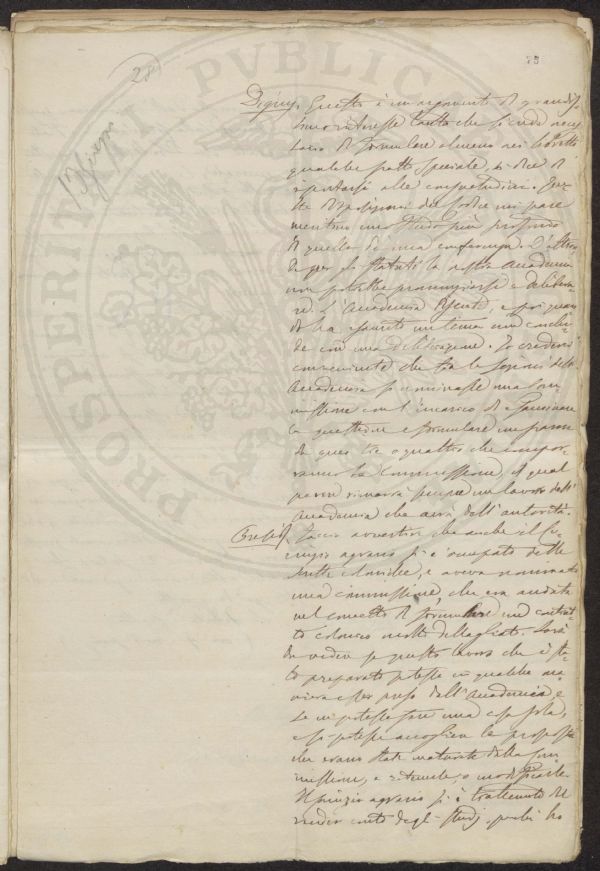 75
Digny. Questo è un argomento di grandis-
simo interesse tanto che si crede neces-
sario di formulare almeno nei libretti
qualche patto speciale, si dice di
riportarsi alle consuetudini. Que-
ste disposizioni del Codice mi pare
meritino uno studio più profondo
di quello di una conferenza. D'altron-
de per lo Statuto la nostra Accademia
non potrebbe pronunziarsi e delibera-
re. L'Accademia discute, e poi quan-
do ha esaurito un tema non conclu-
de con una deliberazione. Io crederei
conveniente che tra le sezioni della
Accademia si nominasse una Com-
missione con l'incarico di esaminare
la questione e formulare un parere
da quei tre o quattro che compor-
ranno la Commissione, il qual
parere rimarrà sempre un lavoro dell'
Accademia che avrà dell'autorità.
Presid. Faccio avvertire che anche il Co-
mizio agrario si è occupato delle
scritte coloniche, e aveva nominato
una commissione, che era andata
nel concetto di formulare un contrat-
to colonico molto dettagliato. Sarà
da vedere se questo lavoro che è sta-
to preparato potesse in qualche ma-
niera esser preso dall'Accademia, e
se ne potesse fare una cosa sola,
e si potesse accogliere le proposte
che erano state maturate dalla Com-
missione, e ritenerle, o modificarle.
Il Comizio agrario si è trattenuto dal
render conto degli studj, perchè ho
PROSPERITATI PVBLICAE